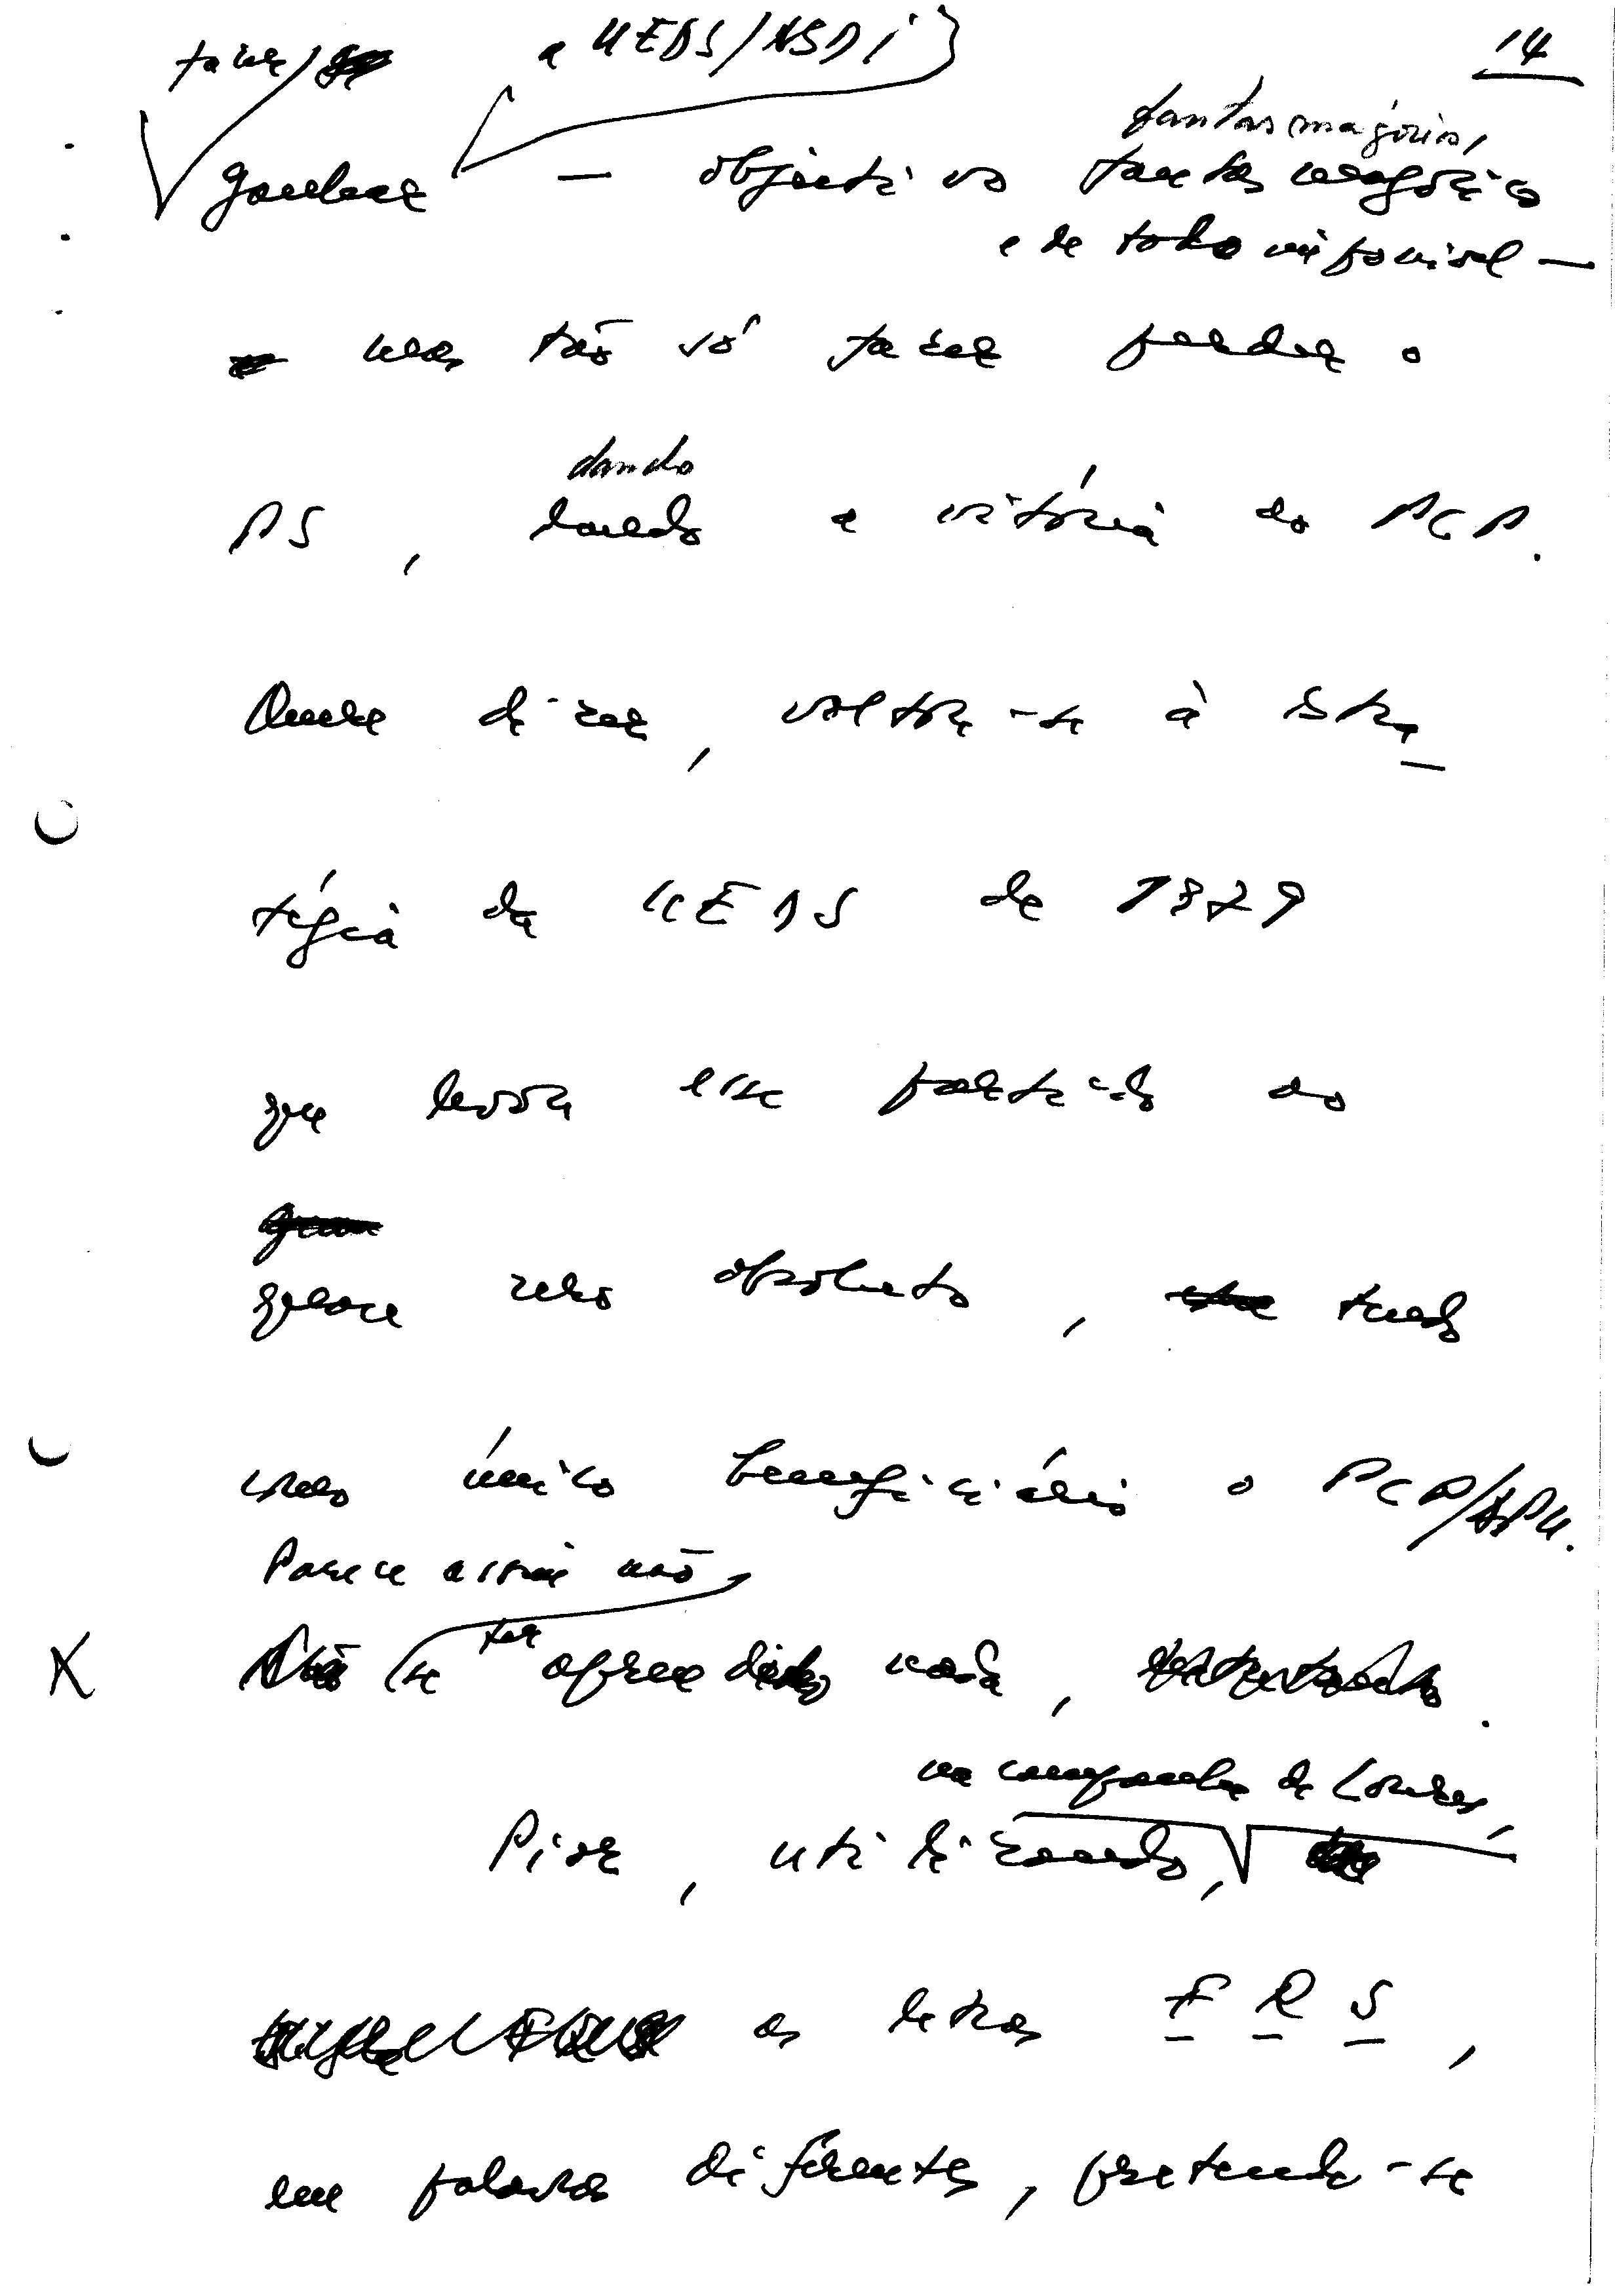 14
fazer a UEDS/ASDI
fantasmagórico,
ganhar — objectivo fantasmagórico
e de todo impossível —
mas tão só fazer perder o
dando
PS, dando a vitória ao PCP.
Quer dizer, voltou-se à estra_
tégia da UEDS de 1979
que levou esse partido ao
quase zero absoluto, tendo
como único beneficiário o PCP/APU.
Parece assim não
se ter aprendido nada,
na campanha de Loures,
Pior, utilizando,
as letras F R S,
em palavras diferentes, pretende-se